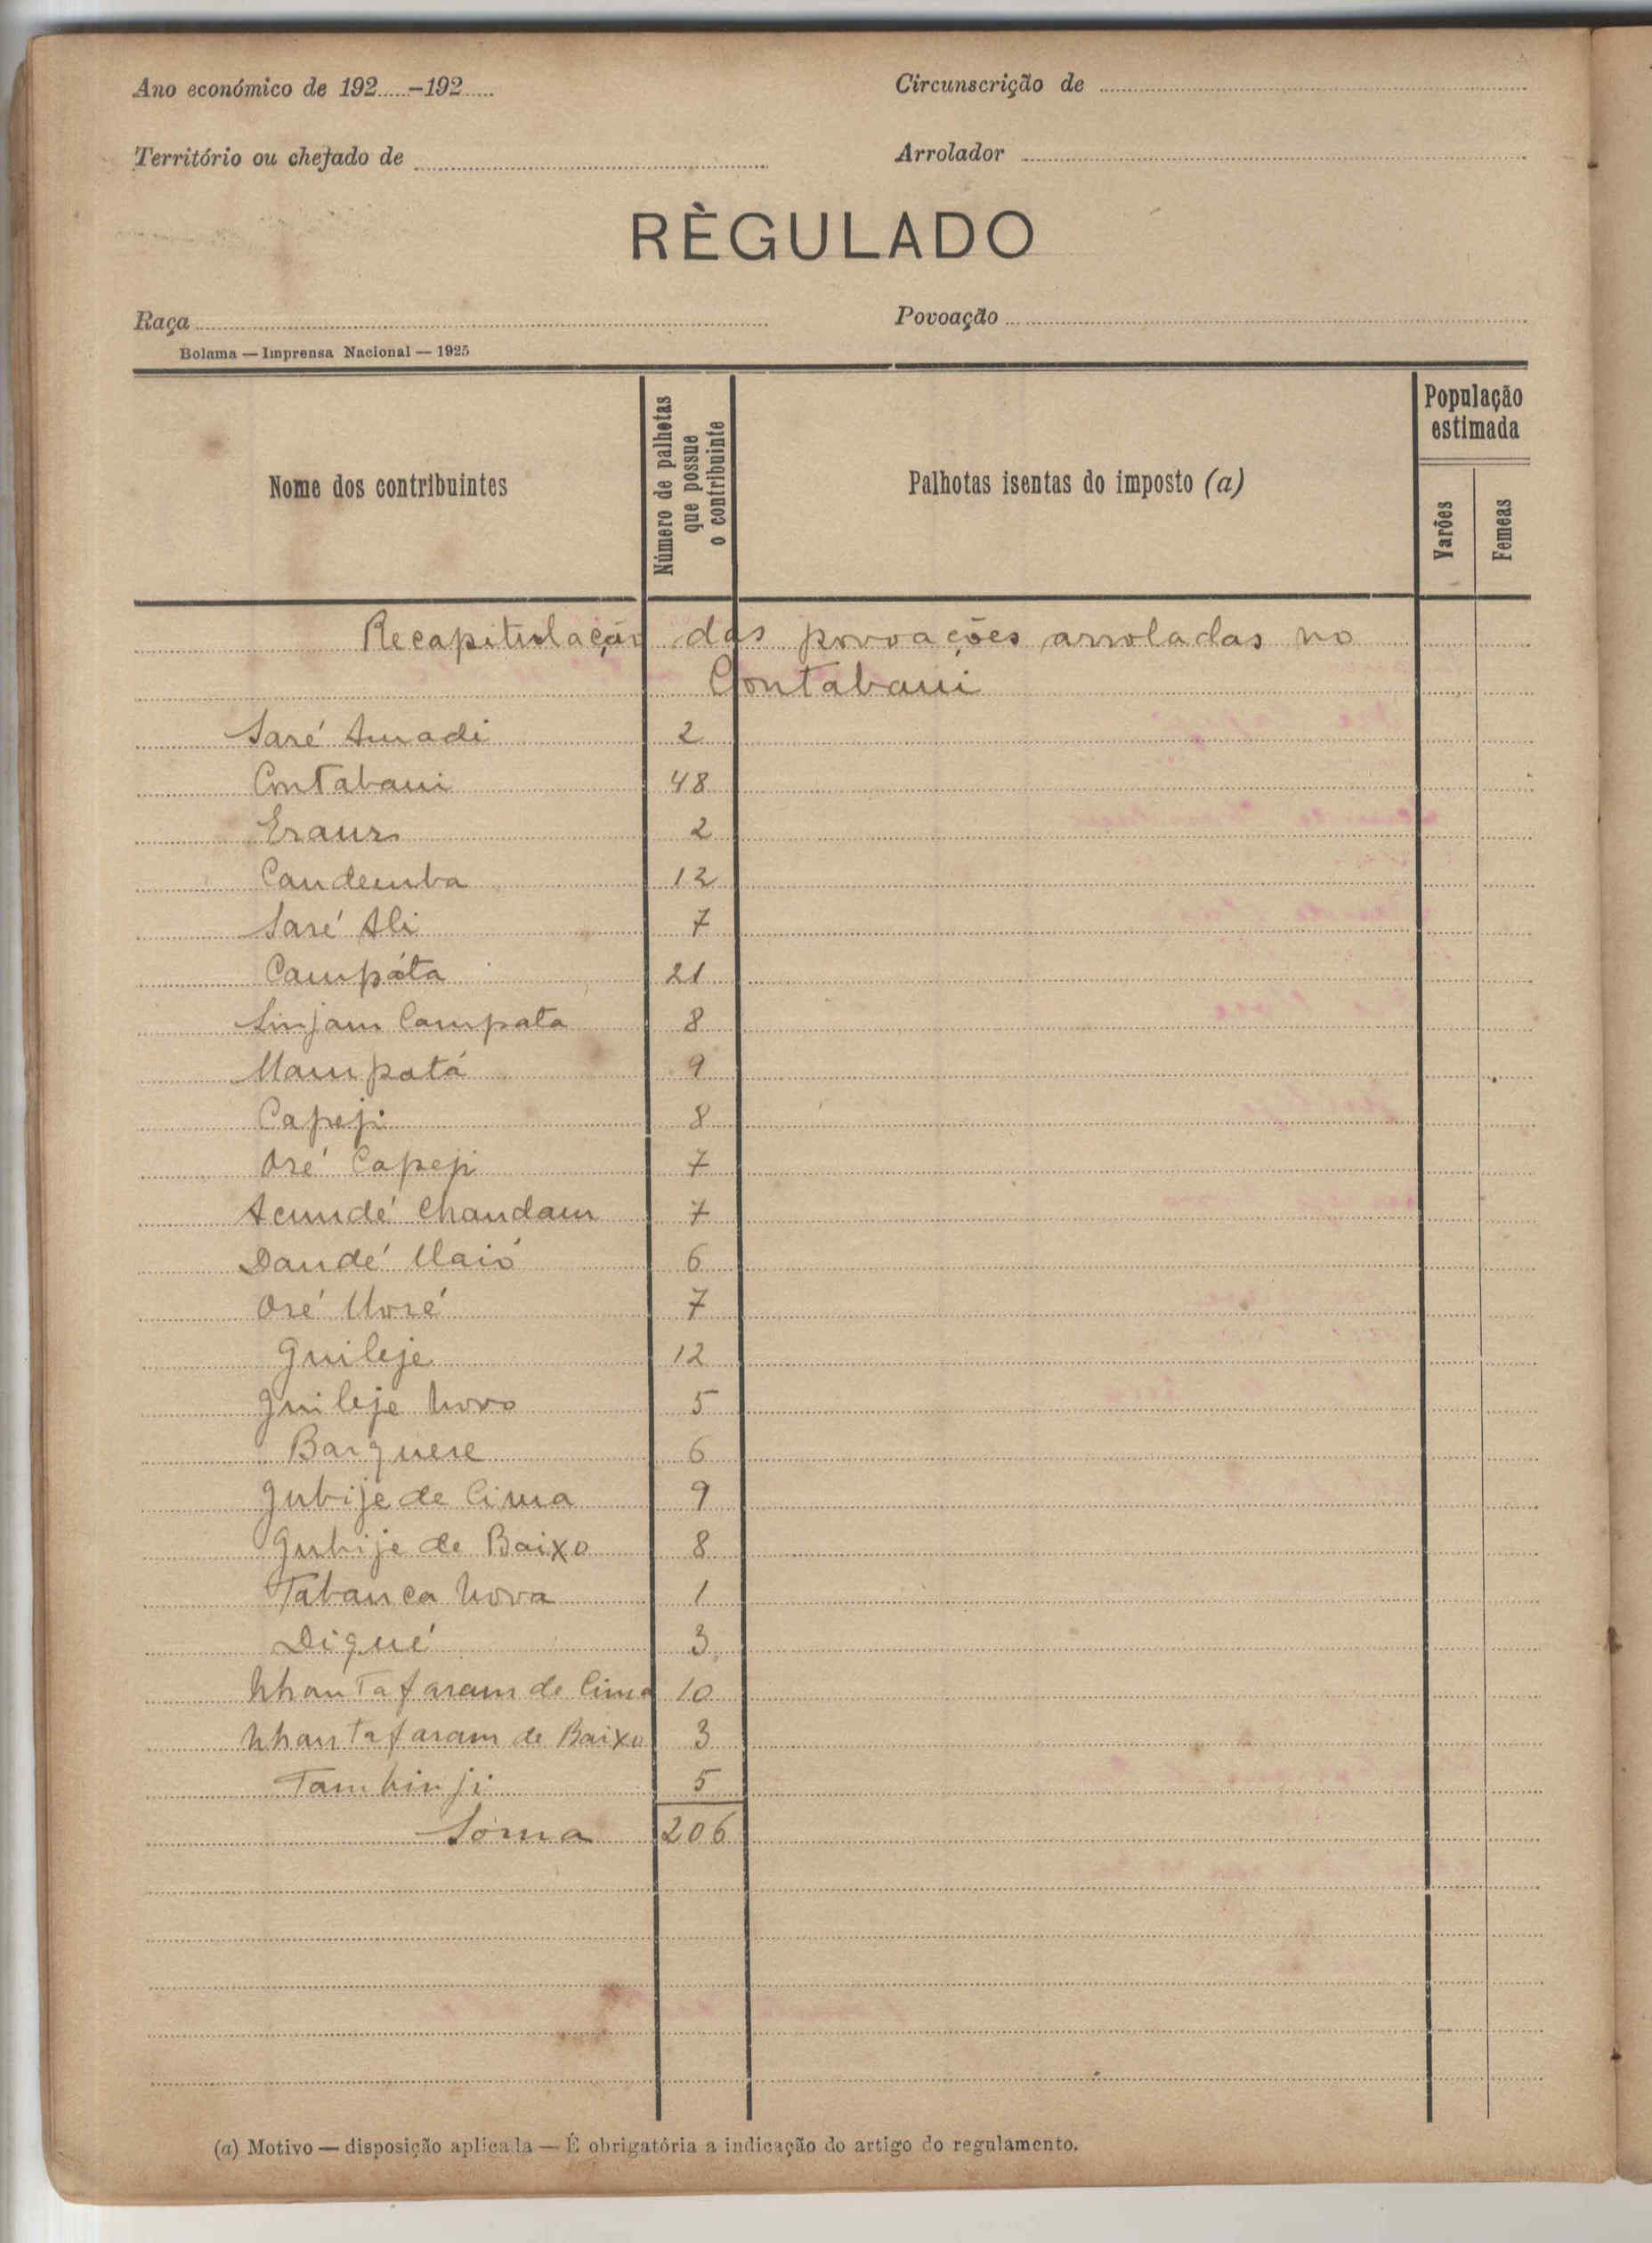 Ano económico de 192.....-192.....
Circunscrição de
Território ou chefado de
Arrolador
RÈGULADO
Raça
Povoação
Bolama — Imprensa Nacional — 1925
Nome dos contribuintes
Número de palhotas que possue o contribuinte
Palhotas isentas do imposto (a)
População estimada
Varões
Femeas
Recapitulação das povoações arroladas no
Contabani
Saré Amadi 2
Contabani 48
2
Candemba 12
Saré Ali 7
Campáta 21
Sinjam Campata 8
Mampatá 9
Capeji 8
Oré Capeji 7
Acundé Chandam 7
Dandé Maió 6
Oré Moré 7
Guileje 12
Guileje Novo 5
Barquere 6
Gubije de Cima 9
Gubije de Baixo 8
Tabanca Nova 1
Diqué 3
Nhantafaram de Cima 10
Nhantafaram de Baixo 3
Tambinji 5
Sôma 206
(a) Motivo — disposição aplicada — É obrigatória a indicação do artigo do regulamento.